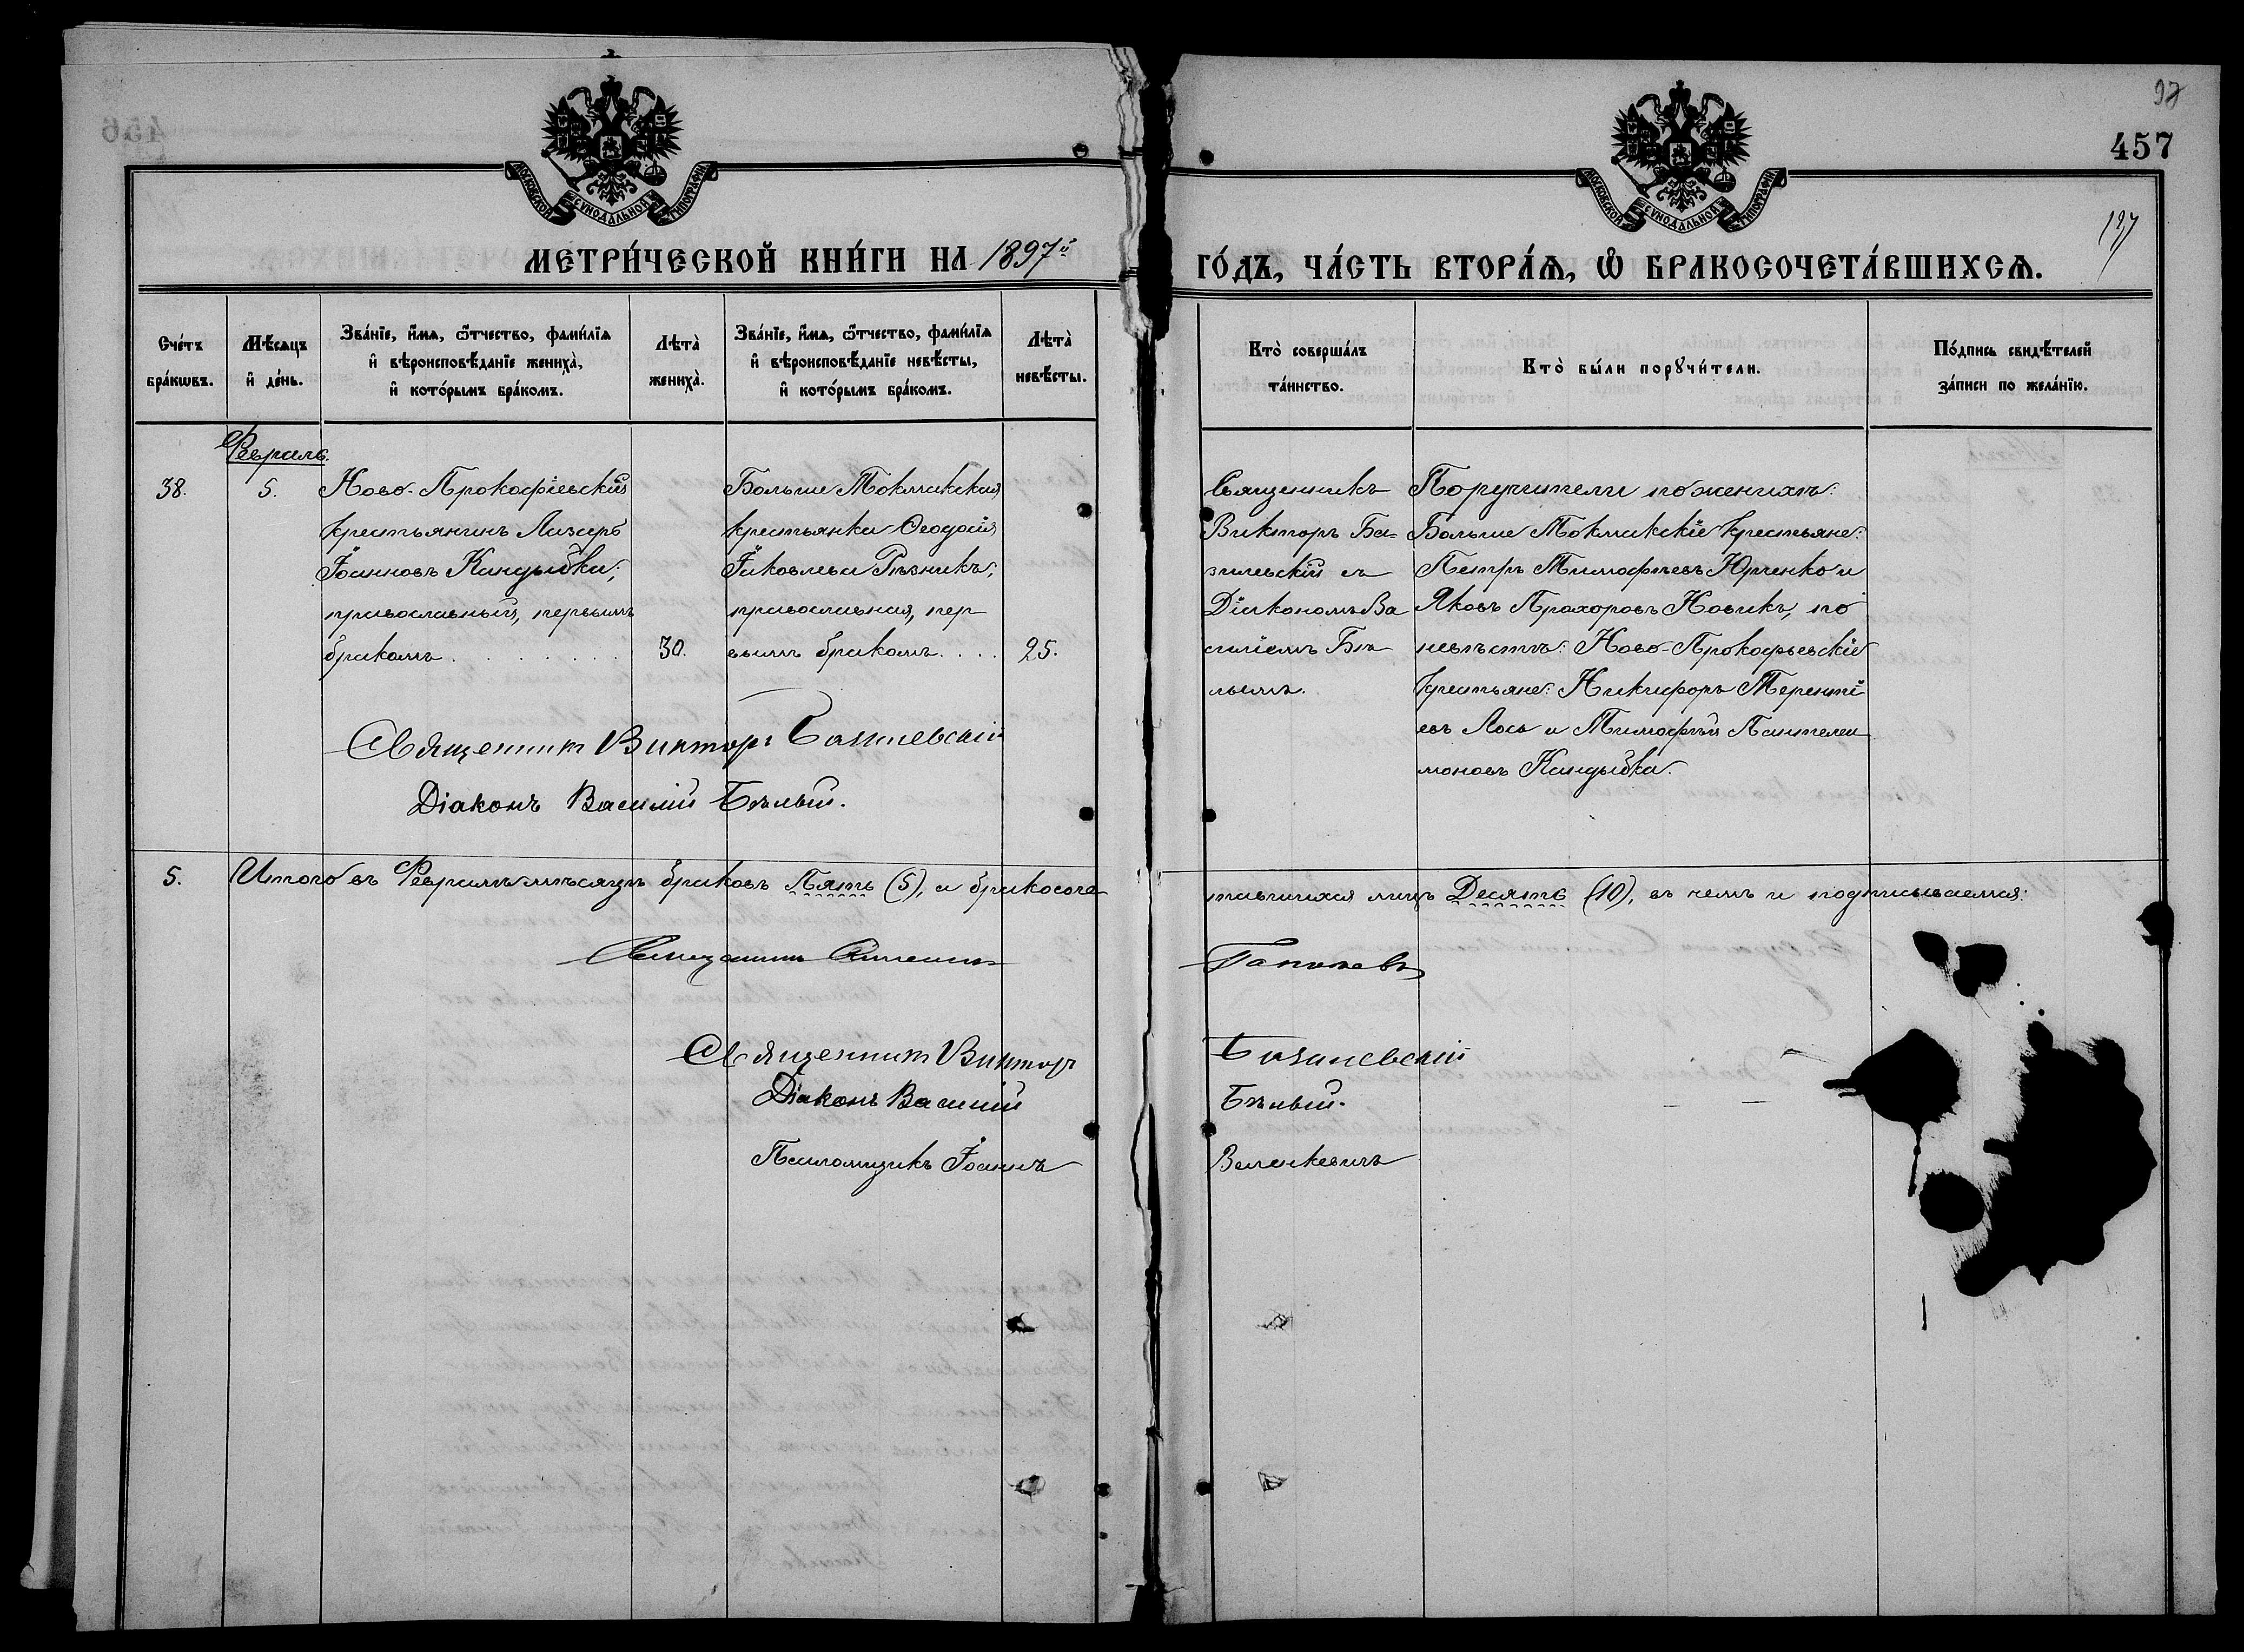 97
457
127
МОСКОВСКОЙ СУНОДАЛЬНОЙ ТИПОГРАФІИ
МОСКОВСКОЙ СУНОДАЛЬНОЙ ТИПОГРАФІИ
МЕТРИ́ЧЕСКОЙ КНИ́ГИ НА 1897й
ГО́ДЪ, ЧА́СТЬ ВТОРА́Ѧ, Ѡ҆ БРАКОСОЧЕТА́ВШИХСѦ.
Сче́тъ бра́кѡвъ.
Мѣ́сяцъ и҆ де́нь.
Зва́нїе, и҆́мя, ѻ҆́тчество, фами́лїя
и҆ вѣроисповѣ́данїе жениха̀,
и҆ кото́рымъ бра́комъ.
Лѣта̀ жениха̀.
Зва́нїе, и҆́мя, ѻ҆́тчество, фами́лїя
и҆ вѣроисповѣ́данїе невѣ́сты,
и҆ кото́рымъ бра́комъ.
Лѣта̀ невѣ́сты.
Кто̀ соверша́лъ та́инство.
Кто̀ бы́ли порꙋчи́тели.
По́дпись свидѣ́телей за́писи по жела́нїю.
Февраль.
38.
5.
Ново-Прокофіевскій
крестьянинъ Лазарь
Іоанновъ Кандыбка;
православный, первымъ
бракомъ . . . . . . . .
30.
Больше Токмакская
крестьянка Ѳеодосія
Іаковлева Рѣзникъ;
православная, пер
вымъ бракомъ. . . .
25.
Священникъ
Викторъ Ба=
зилевскій съ
Діакономъ Ва
силіемъ Бѣ
лымъ.
Поручители по женихѣ:
Больше Токмакскіе крестьяне:
Петръ Тимофѣевъ Юрченко и
Яковъ Прохоровъ Новикъ, по
невѣстѣ: Ново-Прокофьевскіе
крестьяне: Никифоръ Терентіевъ
евъ Лось и Тимофѣй Пантелеи
моновъ Кандыбка.
Священник Виктор Базилевскій
Діаконъ Василій Бѣлый.
5.
Итого въ Февралѣ мѣсяцѣ браковъ Пять (5), а бракосоче
тавшихся лицъ Десять (10), въ чемъ и подписываемся:
Священник
Священник Виктор Базилевскій
Діаконъ Василій Бѣлый.
Псаломщикъ Іоаннъ